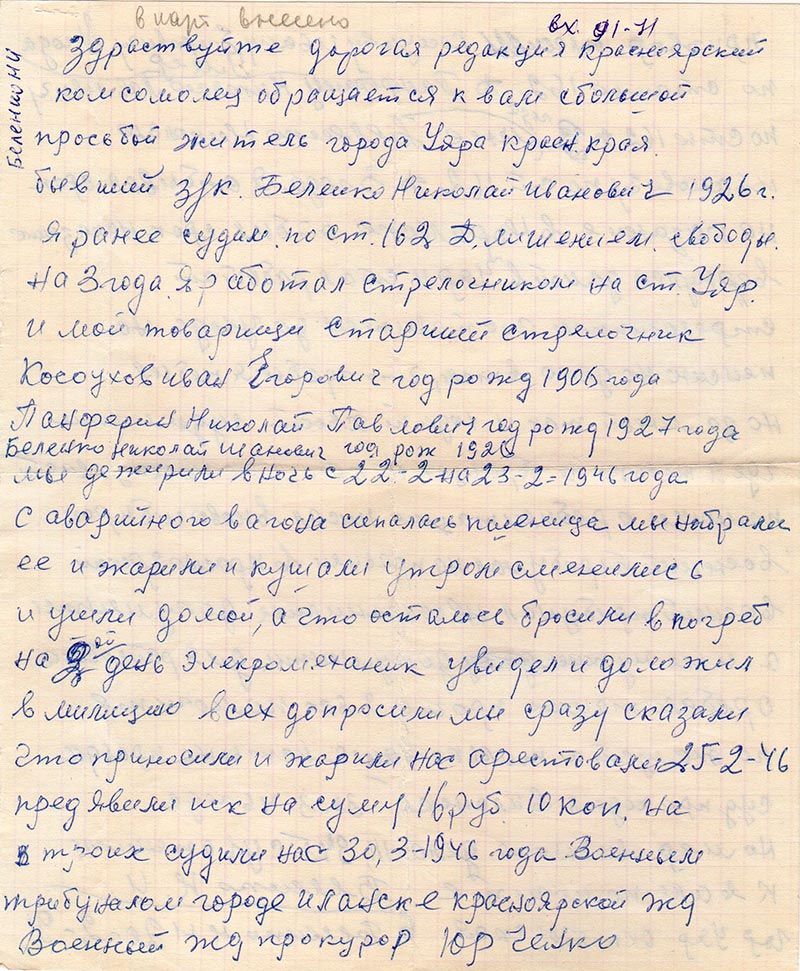 в карт внесено
вх. 91-Н
Беленко НИ
Здраствуйте дорогая редакция Красноярский
комсомолец обращается к вам сбольшой
просьбой житель города Уяра Красн. края.
бывший ЗУК. Беленко Николай Иванович 1926 г.
Я ранее судим. по ст. 162 Д. лишением. свободы.
на 3 года. Я работал стрелочником на ст. Уяр.
и мой товарищи Старший стрелочник
Косоухов иван Егорович год рожд 1906 года
Панферин Николай Павлович год рожд 1927 года
Беленко Николай Иванович год рож 1926
мы дежурили в ночь с 22-2 на 23-2=1946 года
с аварийного вагона сипалась пшеница мы набрали
ее и жарили и кушали утром сменились
и ушли домой, а что осталось бросили в погреб
на 2ой день Элекромеханик увидел и доложил
в милицию всех допросили мы сразу сказали
что приносили и жарили нас арестовали 25-2-46
пред явили иск на суму 16 руб. 10 коп. на
троих судили нас 30,3-1946 года Военным
трибуналом городе Иланске красноярской жд
Военный жд прокурор Юрченко